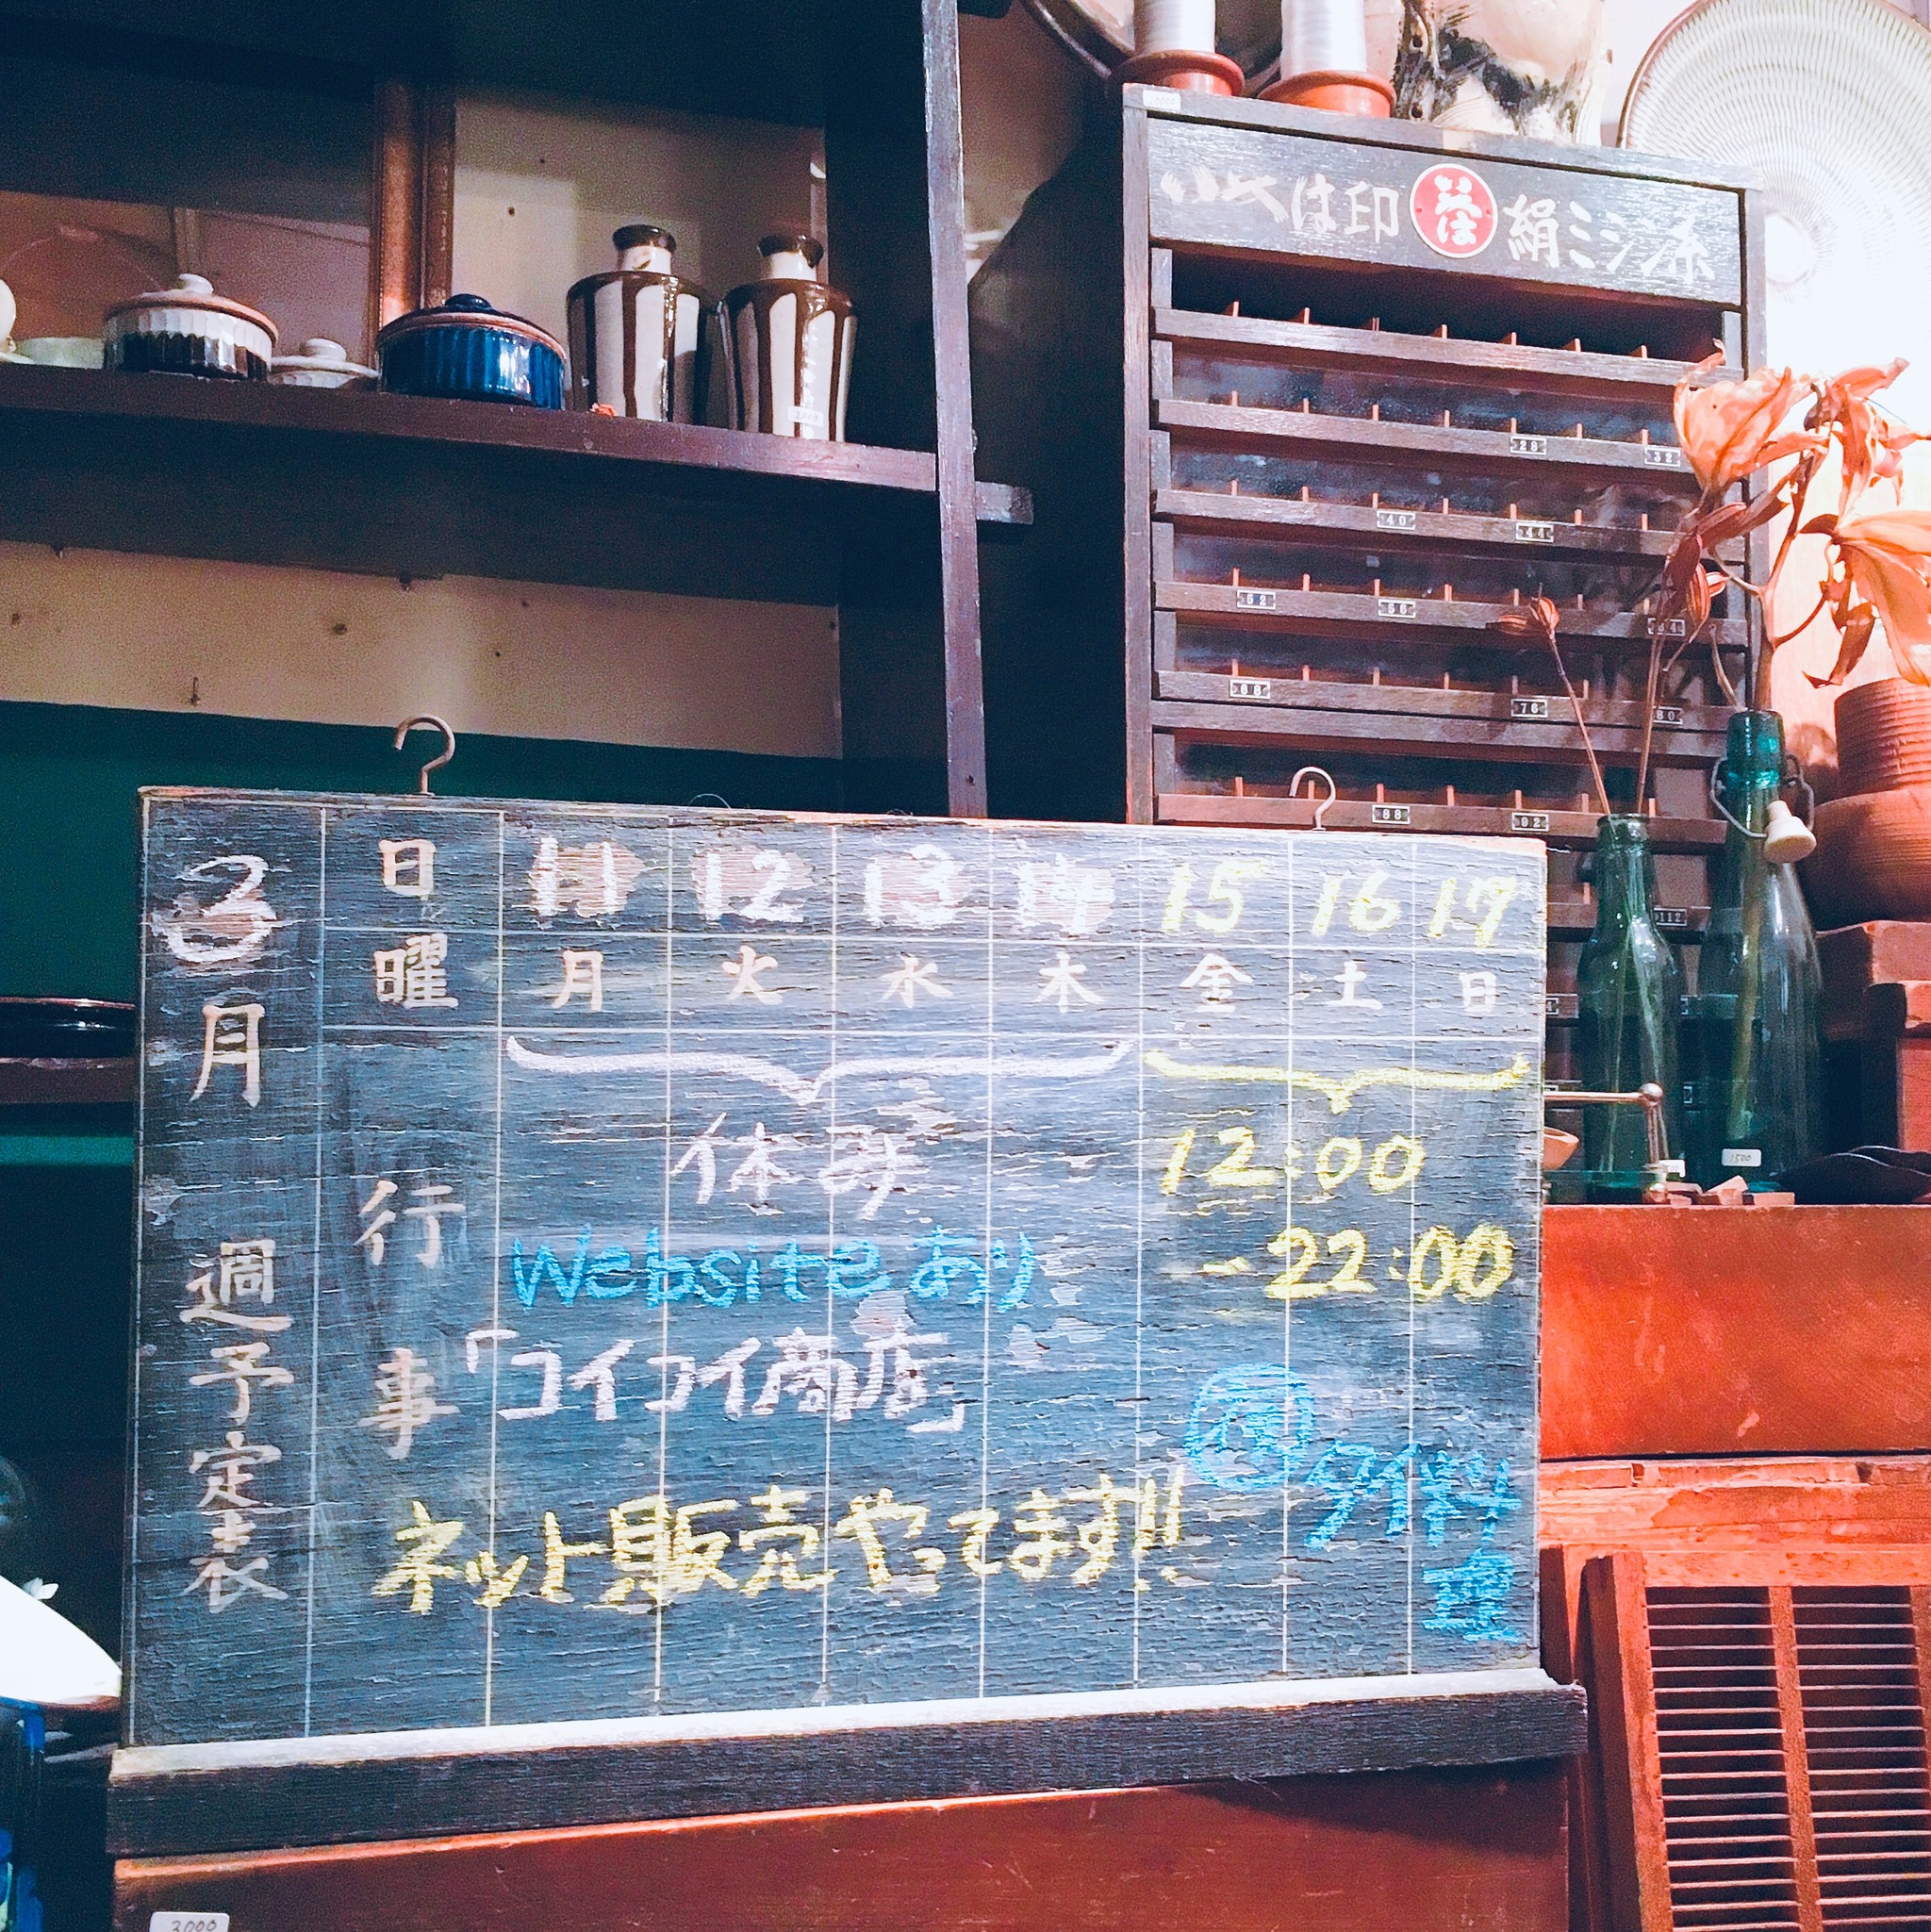 いろは印 いろは 絹ミシン糸
28 32
40 44
52 56 64
68 76 80
88 92
112
3月 週予定表
日 11 12 13 14 15 16 17
曜 月 火 水 木 金 土 日
行事
休み
Websiteあり
「コイコイ商店」
ネット販売やってます!!
12:00
~22:00
タイ料理
1500
3000